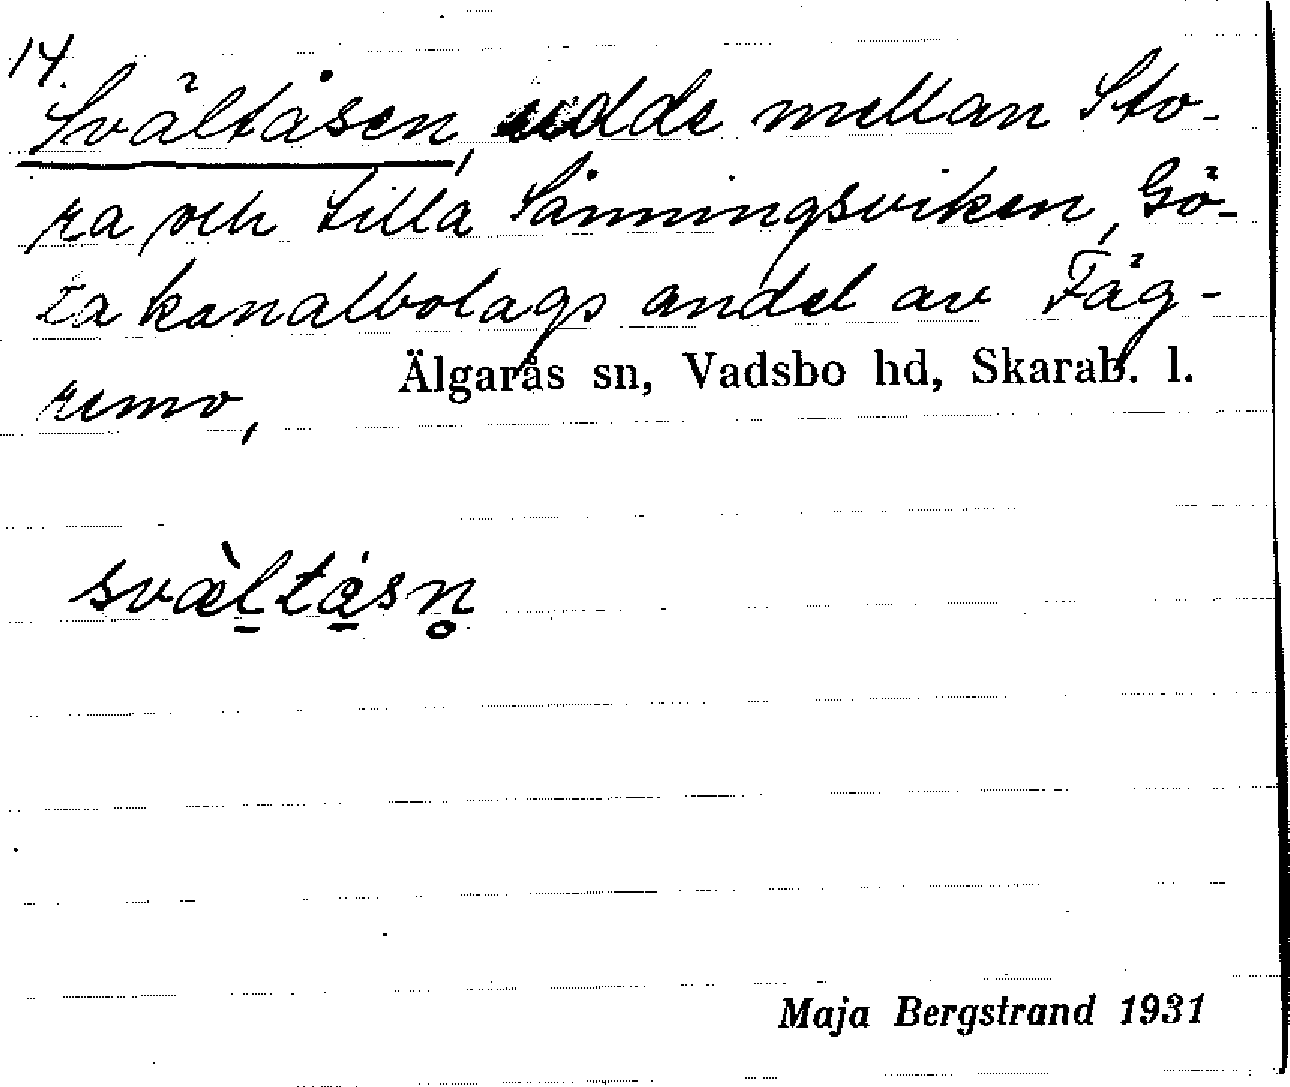 14.
Svältåsen, udde mellan Sto-
ra och Lilla Sånningsviken, Gö-
ta kanalbolags andel av Fäg-
remo,
Älgarås sn, Vadsbo hd, Skarab. l.
svæ̀l̠tá̠sn̥
Maja Bergstrand 1931